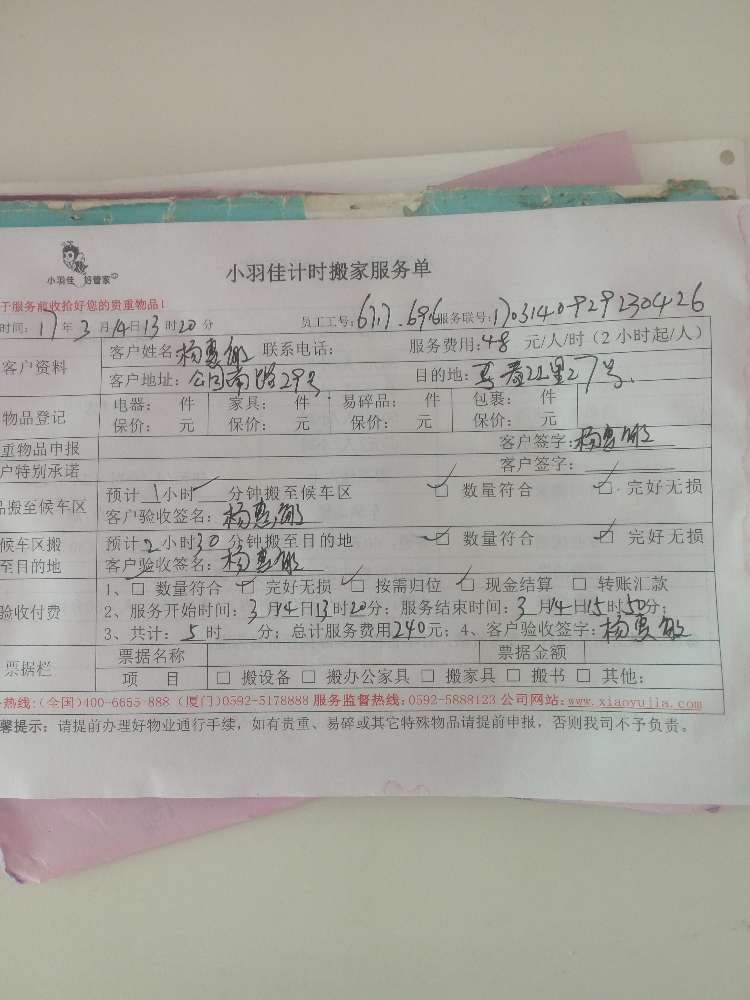 小羽佳 好管家
小羽佳计时搬家服务单
于服务前收拾好您的贵重物品！
时间：17年3月14日13时20分 员工工号：617.696 服务联号：170314.0929230426
客户资料
客户姓名 杨惠敏 联系电话： 服务费用：48 元/人/时（2小时起/人）
客户地址：公园南路29号 目的地：27号
物品登记
电器： 件 家具： 件 易碎品： 件 包裹： 件
保价： 元 保价： 元 保价： 元 保价： 元
重物品申报 客户签字：杨惠敏
户特别承诺 客户签字：
品搬至候车区
预计1小时 分钟搬至候车区 ☑ 数量符合 ☑ 完好无损
客户验收签名：杨惠敏
候车区搬至目的地
预计2小时30分钟搬至目的地 ☑ 数量符合 ☑ 完好无损
客户验收签名：杨惠敏
验收付费
1、□ 数量符合 ☑ 完好无损 ☑ 按需归位 ☑ 现金结算 □ 转账汇款
2、服务开始时间：3月14日13时20分；服务结束时间：3月14日15时50分；
3、共计：5时 分；总计服务费用240元；4、客户验收签字：杨惠敏
票据栏
票据名称 票据金额
项 目 □ 搬设备 □ 搬办公家具 □ 搬家具 □ 搬书 □ 其他：
热线：(全国)400-6655-888 (厦门)0592-5178888 服务监督热线：0592-5888123 公司网站：www.xiaoyujia.com
馨提示：请提前办理好物业通行手续，如有贵重、易碎或其它特殊物品请提前申报，否则我司不予负责。